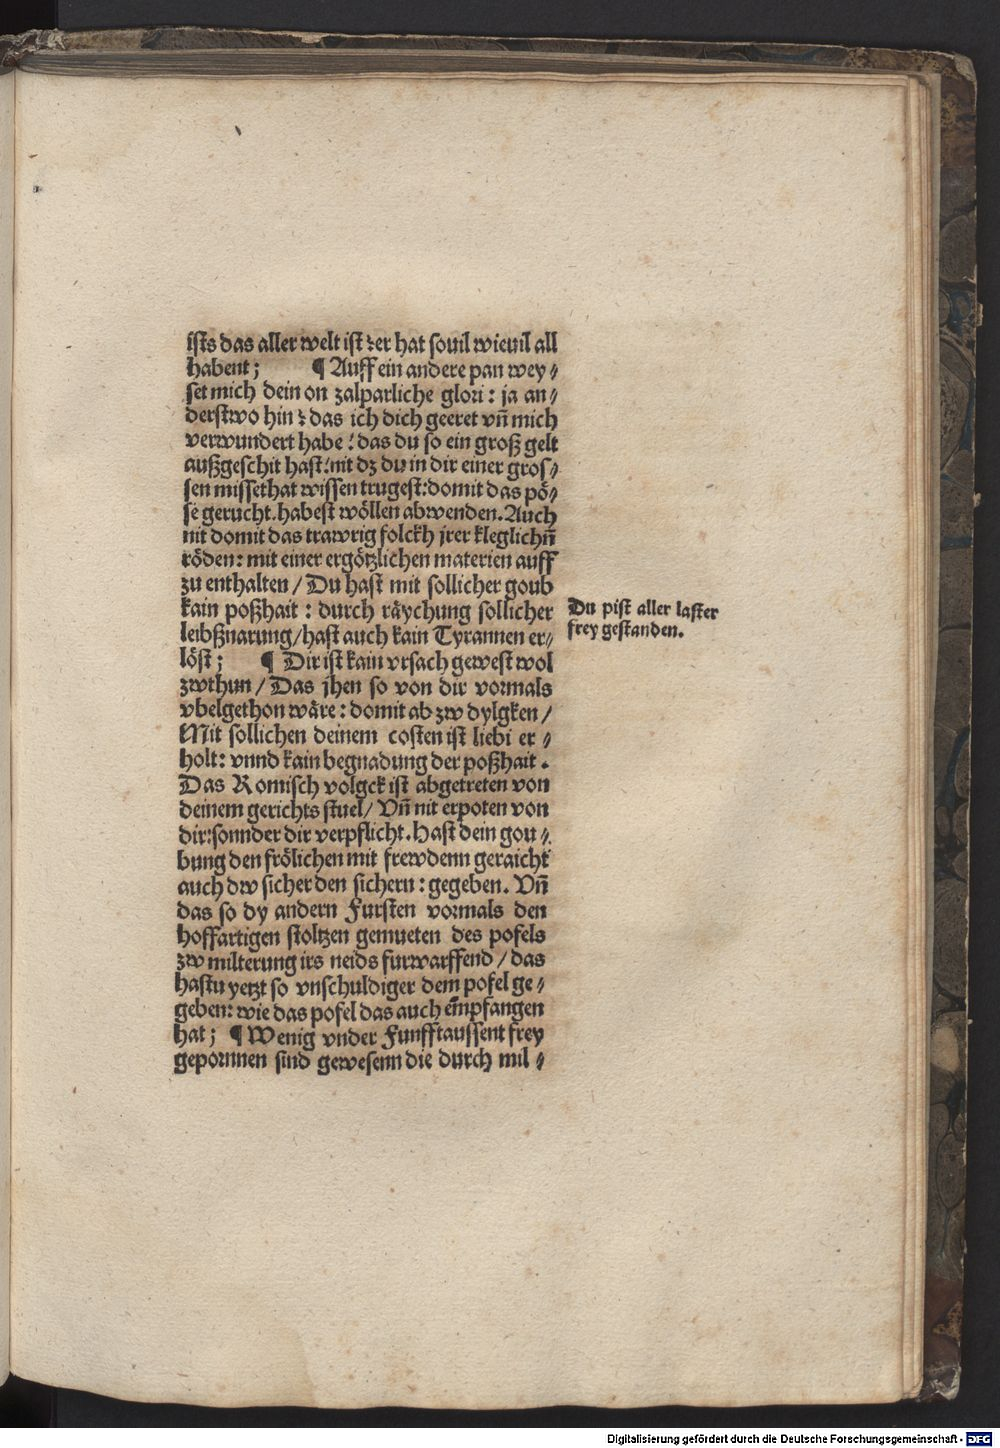 ists das aller welt ist ꝛ er hat souil wieuil all
habent; ¶ Auff ein andere pan wey⸗
set mich dein on zalparliche glori: ja an⸗
derstwo hin ꝛ das ich dich geeret vn̄ mich
verwundert habe: das du so ein groß gelt
außgeschit hast: nit dz du in dir einer gros⸗
sen missethat wissen trugest: domit das pö⸗
se gerucht. habest wöllen abwenden. Auch
nit domit das trawrig folckh jrer kleglichn̄
röden: mit einer ergötzlichen materien auff
zu enthalten / Du hast mit sollicher goub
kain poßhait : durch räychung sollicher
leibßnarung / hast auch kain Tyrannen er⸗
löst; ¶ Dir ist kain vrsach gewest wol
zwthun / Das jhen so von dir vormals
vbelgethon wäre: domit ab zw dylgken /
Mit sollichen deinem costen ist liebi er⸗
holt: vnnd kain begnadung der poßhait .
Das Romisch volgck ist abgetreten von
deinem gerichts stuel / Vn̄ nit erpoten von
dir: sonnder dir verpflicht. Hast dein gou⸗
bung den frölichen mit frewdenn geraicht
auch dw sicher den sichern: gegeben. Vn̄
das so dy andern Fursten vormals den
hoffartigen stoltzen gemueten des pofels
zw milterung irs neids furwarffend / das
hastu yetzt so vnschuldiger dem pofel ge⸗
geben: wie das pofel das auch em̄pfangen
hat; ¶ Wenig vnder Funfftaussent frey
gepornnen sind gewesenn die durch mil⸗
Du pist aller laster
frey gestanden.
Digitalisierung gefördert durch die Deutsche Forschungsgemeinschaft - DFG